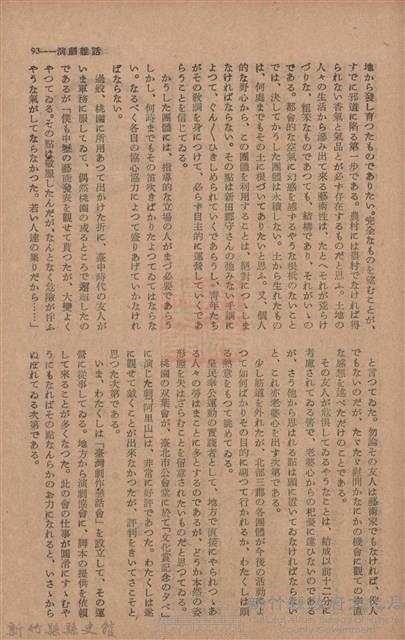 93——演劇雜話
地から發し育つたものでありたい。完全なものを望むことが、
すでに邪道に陷る第一步である。農村には農村でなければ得
られない香氣と氣品とが必ず存在するものだと思ふ。土地の
人々の生活から滲み出て來る藝術性は、たとへそれが荒らけ
づりな、粗笨なものであつても、結構であり、それがいゝの
である。都會的な空氣に幻惑を感ずるやうな根柢のないこと
では、決してかうした團體は永續しない。土から生れたもの
は、何處までもその土に根づいてありたいと思ふ。又、個人
的な野心から、この團體を利用することは、絕對につゝしま
なければならない。その點は新田郡守さんの弛みない手綱に
よつて、ぐん〳〵ひきしめられていくであらうし、靑年たち
がその敎調を身につけて、必らず自主的に運營していくであ
らうことを信じてゐる。
かうした團體には、指導的な立場の人がまづ必要であらう
しかし、何時までもその笛吹きばかりたよつてゐてはならな
い。なるべく各自の協心協力によつて盛りあげていかなけれ
ばならない。
過般、桃園に所用あつて出かけた折に、臺中時代の友人が
いま軍務に服してゐて、偶然桃園の或るところで邂逅したの
であるが「僕も中壢の藝能發表を觀せて貰つたが、大變よく
やつてゐる。その點は敬服したんだが、なんとなく危險が伴ふ
やうな氣がしてならなかつた。若い人達の集りだから……」
と言つてゐた。勿論その友人は藝術家でもなければ、俊人
でもないのだが、たゞたゞ慰問かなにかの機會に觀ての率直
な感想を述べただけのことである。
その友人が危惧してゐるやうなことは、結成以前十二分に
考慮されてゐる筈で、老婆心からの杞憂に違ひないのである
が、さう他から思はれる點は頭に置いてゐなければならない
と、これ亦老婆心を出す次第である。
少し筋道を外れたが、北部三郡の各團體が今後の活動によ
つて如何ばかりその目的に副つて行かれるか、わたくしは頭る
熱意をもつて眺めてゐる。
皇民奉公運動の實踐者として、地方で直接にやられつゝあ
る人々の勞はまことに多とするのであるが、どうか本然の姿
形態を失はざらむことを留意されたいものだと思つてゐる。
桃園の双葉會が、臺北市公會堂に於て「文化賞記念の夕べ」
に演じた劇「阿里山」は、非常に好評であつた。わたくしは遂
に觀せて戴くことが出來なかつたが、評判をきいてさこそと
思つた次第である。
いま、わたくしは「臺灣劇作懇話會」を設立して、その運
營に從事してゐる。地方から演劇協會に、脚本の提供を依頼
して來ることが多くなつた。此の會の仕事が圓滑にすゝむや
うにもなればその點なんらかのお力になれると、いさゝから
ぬぼれてゐる次第である。
新竹縣縣史館